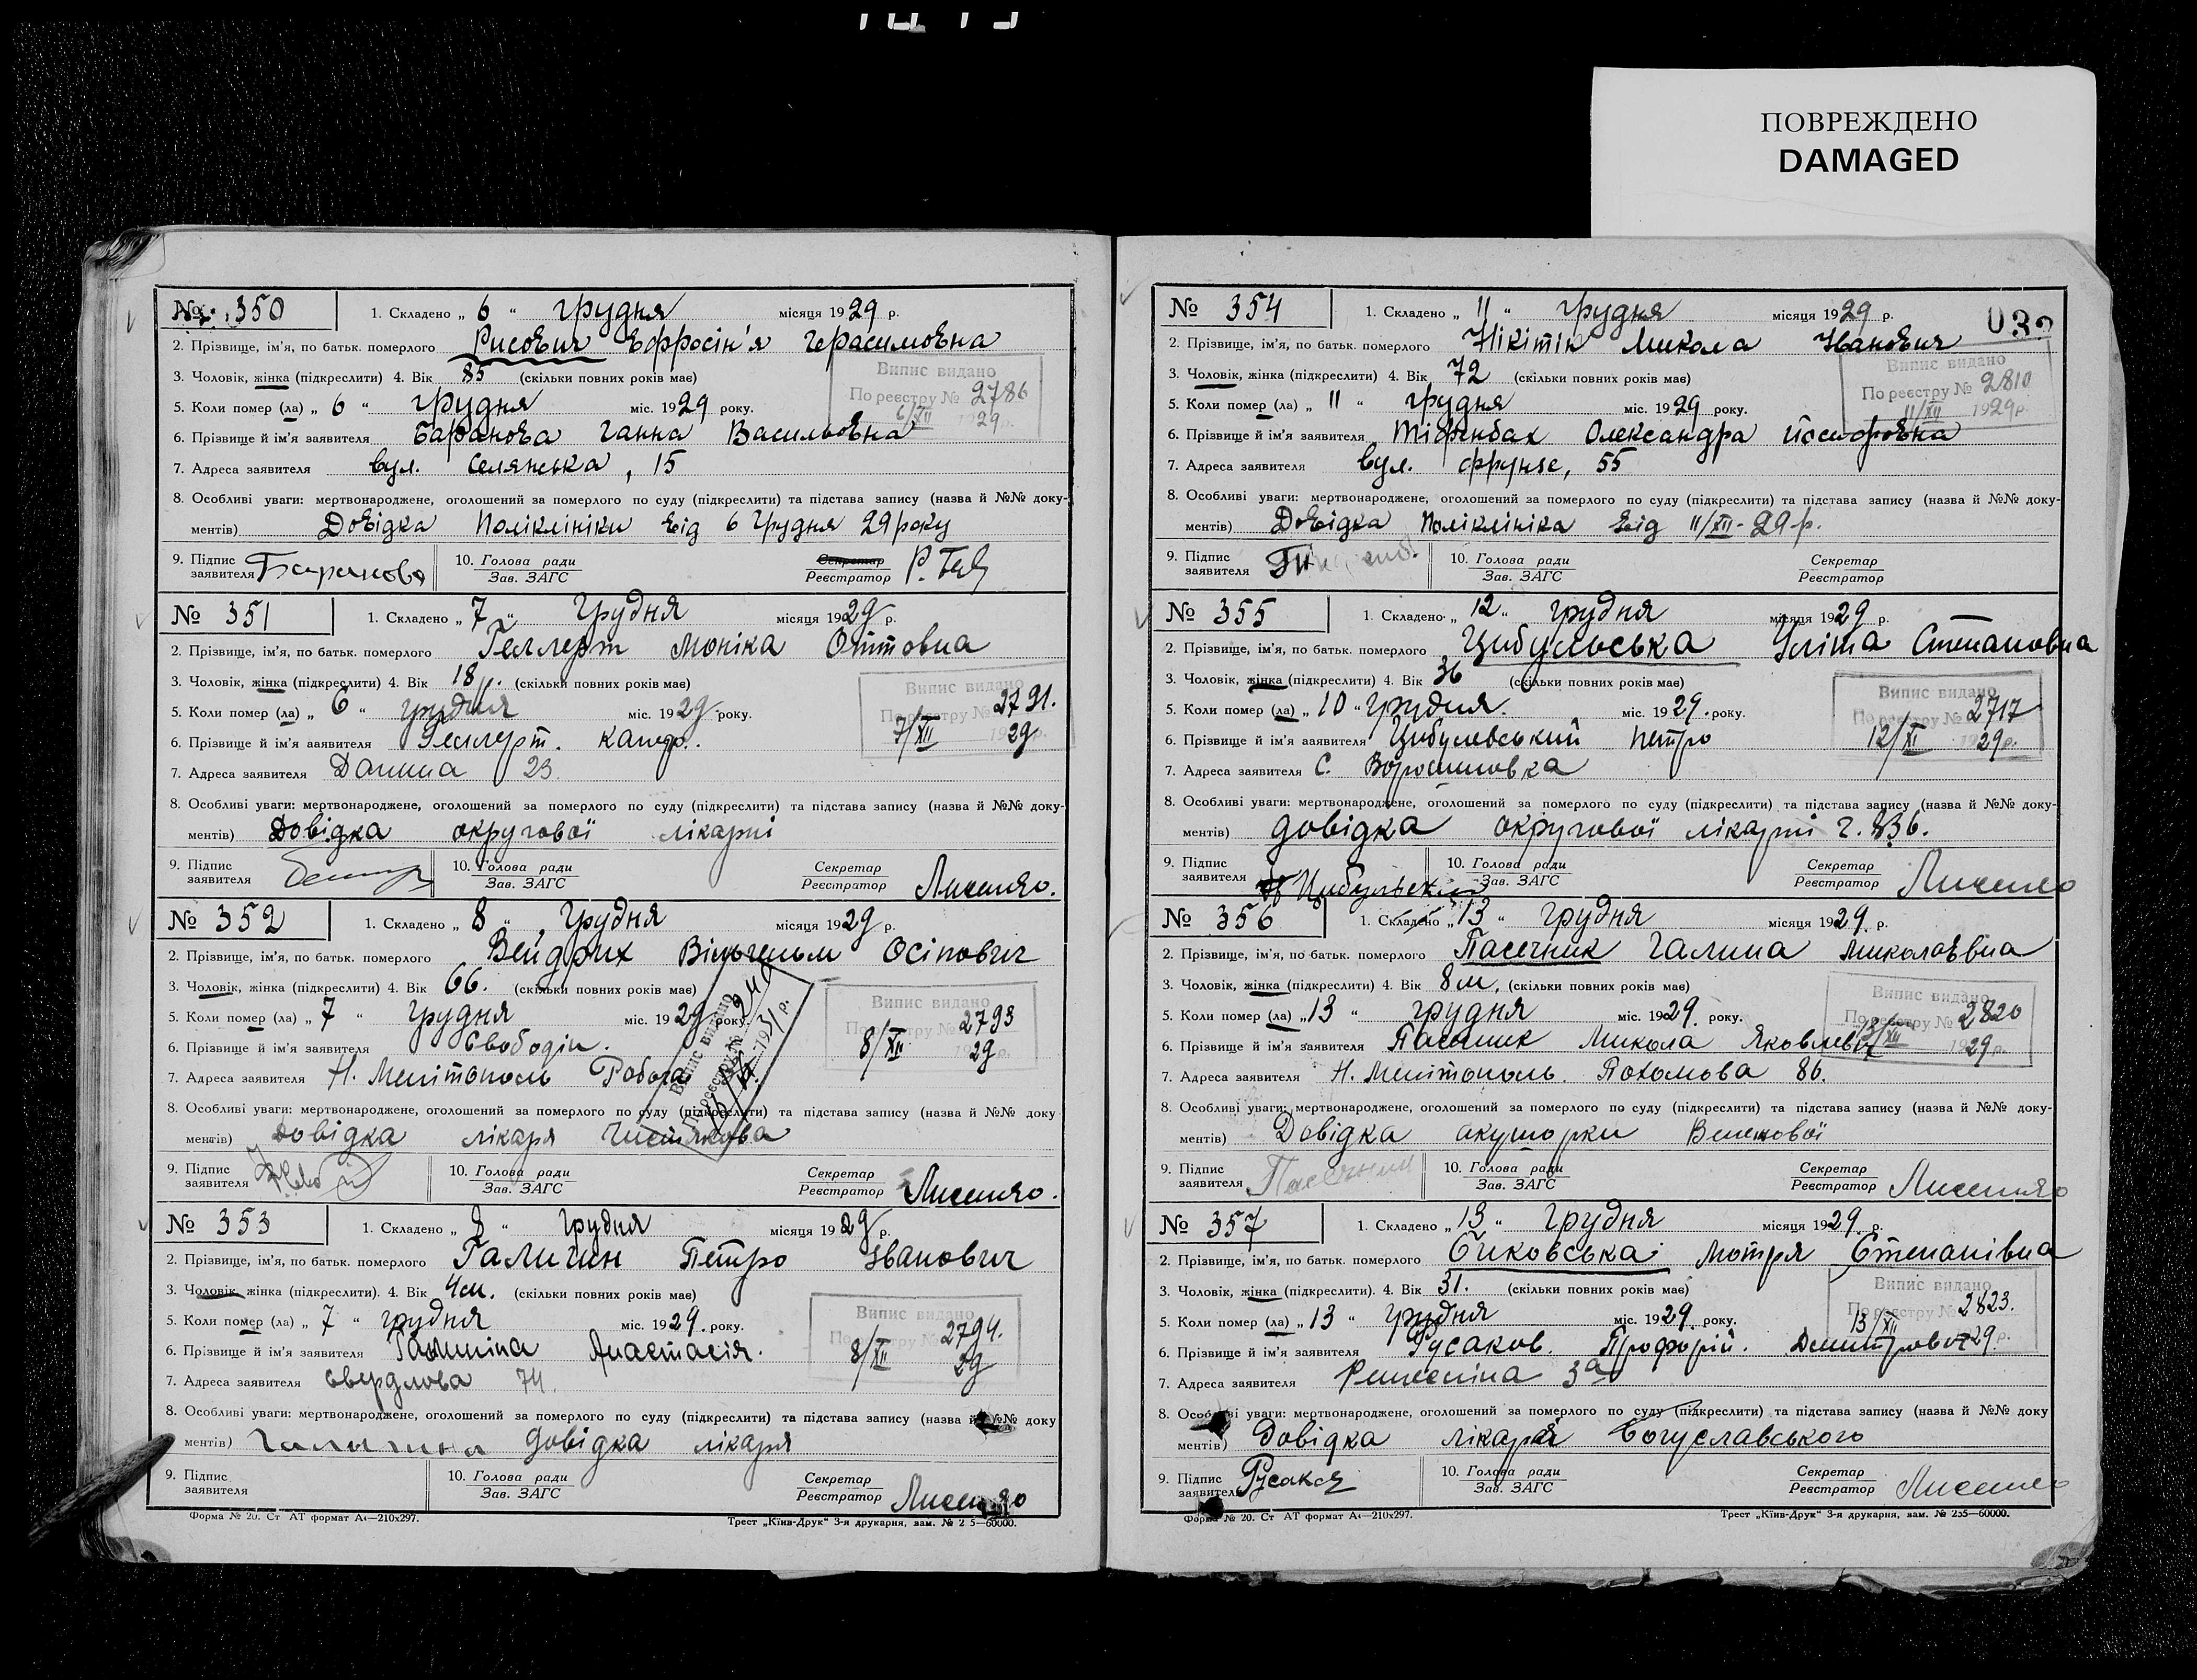 ПОВРЕЖДЕНО
DAMAGED
№ 350 1. Складено „ 6 “ грудня місяця 1929 р.
2. Прізвище, ім'я, по батьк. померлого Рисович Єфросін'я Герасимовна
3. Чоловік, жінка (підкреслити) 4. Вік 85 (скільки повних років має)
Випис видано
По реєстру № 2786
6/XII 1929 р.
5. Коли помер (ла) „ 6 “ грудня міс. 1929 року.
6. Прізвище й ім'я заявителя Баранова Ганна Васильовна
7. Адреса заявителя вул. Селянська, 15
8. Особливі уваги: мертвонароджене, оголошений за померлого по суду (підкреслити) та підстава запису (назва й №№ доку-
ментів) Довідка Поліклініки від 6 Грудня 29 року
9. Підпис заявителя Баранова 10. Голова ради Зав. ЗАГС Секретар Реєстратор
№ 351 1. Складено „ 7 “ Грудня місяця 1929 р.
2. Прізвище, ім'я, по батьк. померлого Геллерт Моніка Оттовна
3. Чоловік, жінка (підкреслити) 4. Вік 18 р. (скільки повних років має)
Випис видано
По реєстру № 2791.
7/XII 1929 р.
5. Коли помер (ла) „ 6 “ грудня міс. 1929 року.
6. Прізвище й ім'я заявителя Геллерт.
7. Адреса заявителя 23.
8. Особливі уваги: мертвонароджене, оголошений за померлого по суду (підкреслити) та підстава запису (назва й №№ доку-
ментів) Довідка округової лікарні
9. Підпис заявителя 10. Голова ради Зав. ЗАГС Секретар Реєстратор Лисенко.
№ 352 1. Складено „ 8 “ Грудня місяця 1929 р.
2. Прізвище, ім'я, по батьк. померлого Вейдрих Вільгельм Осіпович
3. Чоловік, жінка (підкреслити) 4. Вік 66. (скільки повних років має)
Випис видано
По реєстру № 2793
8/XII 1929 р.
5. Коли помер (ла) „ 7 “ грудня міс. 1929 року.
Випис видано
По реєстру №
1931 р.
6. Прізвище й ім'я заявителя Свободін.
7. Адреса заявителя Н. Мелітополь Робоча
8. Особливі уваги: мертвонароджене, оголошений за померлого по суду (підкреслити) та підстава запису (назва й №№ доку
ментів) Довідка лікаря Чистякова
9. Підпис заявителя 10. Голова ради Зав. ЗАГС Секретар Реєстратор Лисенко.
№ 353 1. Складено „ 8 “ Грудня місяця 1929 р.
2. Прізвище, ім'я, по батьк. померлого Галичин Петро Іванович
3. Чоловік, жінка (підкреслити). 4. Вік 4 м. (скільки повних років має)
Випис видано
По реєстру № 2794.
8/XII 29
5. Коли помер (ла) „ 7 “ грудня міс. 1929. року.
6. Прізвище й ім'я заявителя Анастасія.
7. Адреса заявителя Свердлова 74.
8. Особливі уваги: мертвонароджене, оголошений за померлого по суду (підкреслити) та підстава запису (назва й №№ доку
ментів) довідка лікаря
9. Підпис заявителя 10. Голова ради Зав. ЗАГС Секретар Реєстратор Лисенко
Форма № 20. Ст АТ формат А4—210х297. Трест „Київ-Друк“ 3-я друкарня, зам. № 2 5—60000.
№ 354 1. Складено „ 11 “ грудня місяця 1929 р.
2. Прізвище, ім'я, по батьк. померлого Нікітін Микола Іванович
3. Чоловік, жінка (підкреслити) 4. Вік 72 (скільки повних років має)
Випис видано
По реєстру № 2810
11/XII 1929 р.
5. Коли помер (ла) „ 11 “ грудня міс. 1929 року.
6. Прізвище й ім'я заявителя Тіфенбах Олександра Йосифовна
7. Адреса заявителя вул. Фрунзе, 55
8. Особливі уваги: мертвонароджене, оголошений за померлого по суду (підкреслити) та підстава запису (назва й №№ доку-
ментів) Довідка Поліклініка від 11/XII-29 р.
9. Підпис заявителя 10. Голова ради Зав. ЗАГС Секретар Реєстратор
№ 355 1. Складено „ 12 “ грудня місяця 1929 р.
2. Прізвище, ім'я, по батьк. померлого Цибульська Уліта Степановна
3. Чоловік, жінка (підкреслити) 4. Вік 36 (скільки повних років має)
Випис видано
По реєстру № 2717
12/XI 1929 р.
5. Коли помер (ла) „ 10 “ грудня. міс. 1929. року.
6. Прізвище й ім'я заявителя Цибулевський Петро
7. Адреса заявителя С. Ворошиловка
8. Особливі уваги: мертвонароджене, оголошений за померлого по суду (підкреслити) та підстава запису (назва й №№ доку-
ментів) довідка округової лікарні ч. 836.
9. Підпис заявителя 10. Голова ради Зав. ЗАГС Секретар Реєстратор Лисенко
№ 356 1. Складено „ 13 “ грудня місяця 1929. р.
2. Прізвище, ім'я, по батьк. померлого Пасечник Галина Миколаєвна
3. Чоловік, жінка (підкреслити) 4. Вік 8 м. (скільки повних років має)
Випис видано
По реєстру № 2820
13/XII 1929 р.
5. Коли помер (ла) „ 13 “ грудня міс. 1929. року.
6. Прізвище й ім'я заявителя Пасечник Микола Яковлевич
7. Адреса заявителя Н. Мелітополь. 86.
8. Особливі уваги: мертвонароджене, оголошений за померлого по суду (підкреслити) та підстава запису (назва й №№ доку-
ментів) Довідка акушорки
9. Підпис заявителя Пасечник 10. Голова ради Зав. ЗАГС Секретар Реєстратор Лисенко
№ 357 1. Складено „ 13 “ грудня місяця 1929. р.
2. Прізвище, ім'я, по батьк. померлого Биковська Мотря Степанівна
3. Чоловік, жінка (підкреслити). 4. Вік 31. (скільки повних років має)
Випис видано
По реєстру № 2823.
13/XII 29 р.
5. Коли помер (ла) „ 13 “ грудня міс. 1929. року.
6. Прізвище й ім'я заявителя Русаков Профорій. Дмитрович
7. Адреса заявителя 3а
8. Особливі уваги: мертвонароджене, оголошений за померлого по суду (підкреслити) та підстава запису (назва й №№ доку
ментів) Довідка лікаря Богуславського
9. Підпис заявителя Русаков 10. Голова ради Зав. ЗАГС Секретар Реєстратор Лисенко
Форма № 20. Ст АТ формат А4—210х297. Трест „Київ-Друк“ 3-я друкарня, зам. № 235—60000.